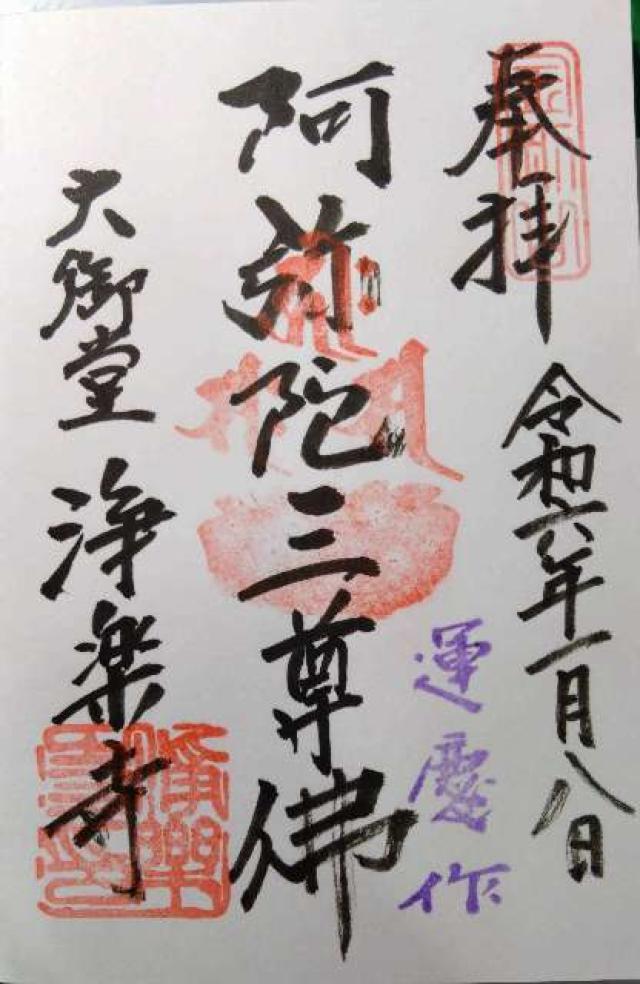 奉拝
令和六年一月八日
運慶作
阿弥陀三尊佛
大御堂
浄楽寺